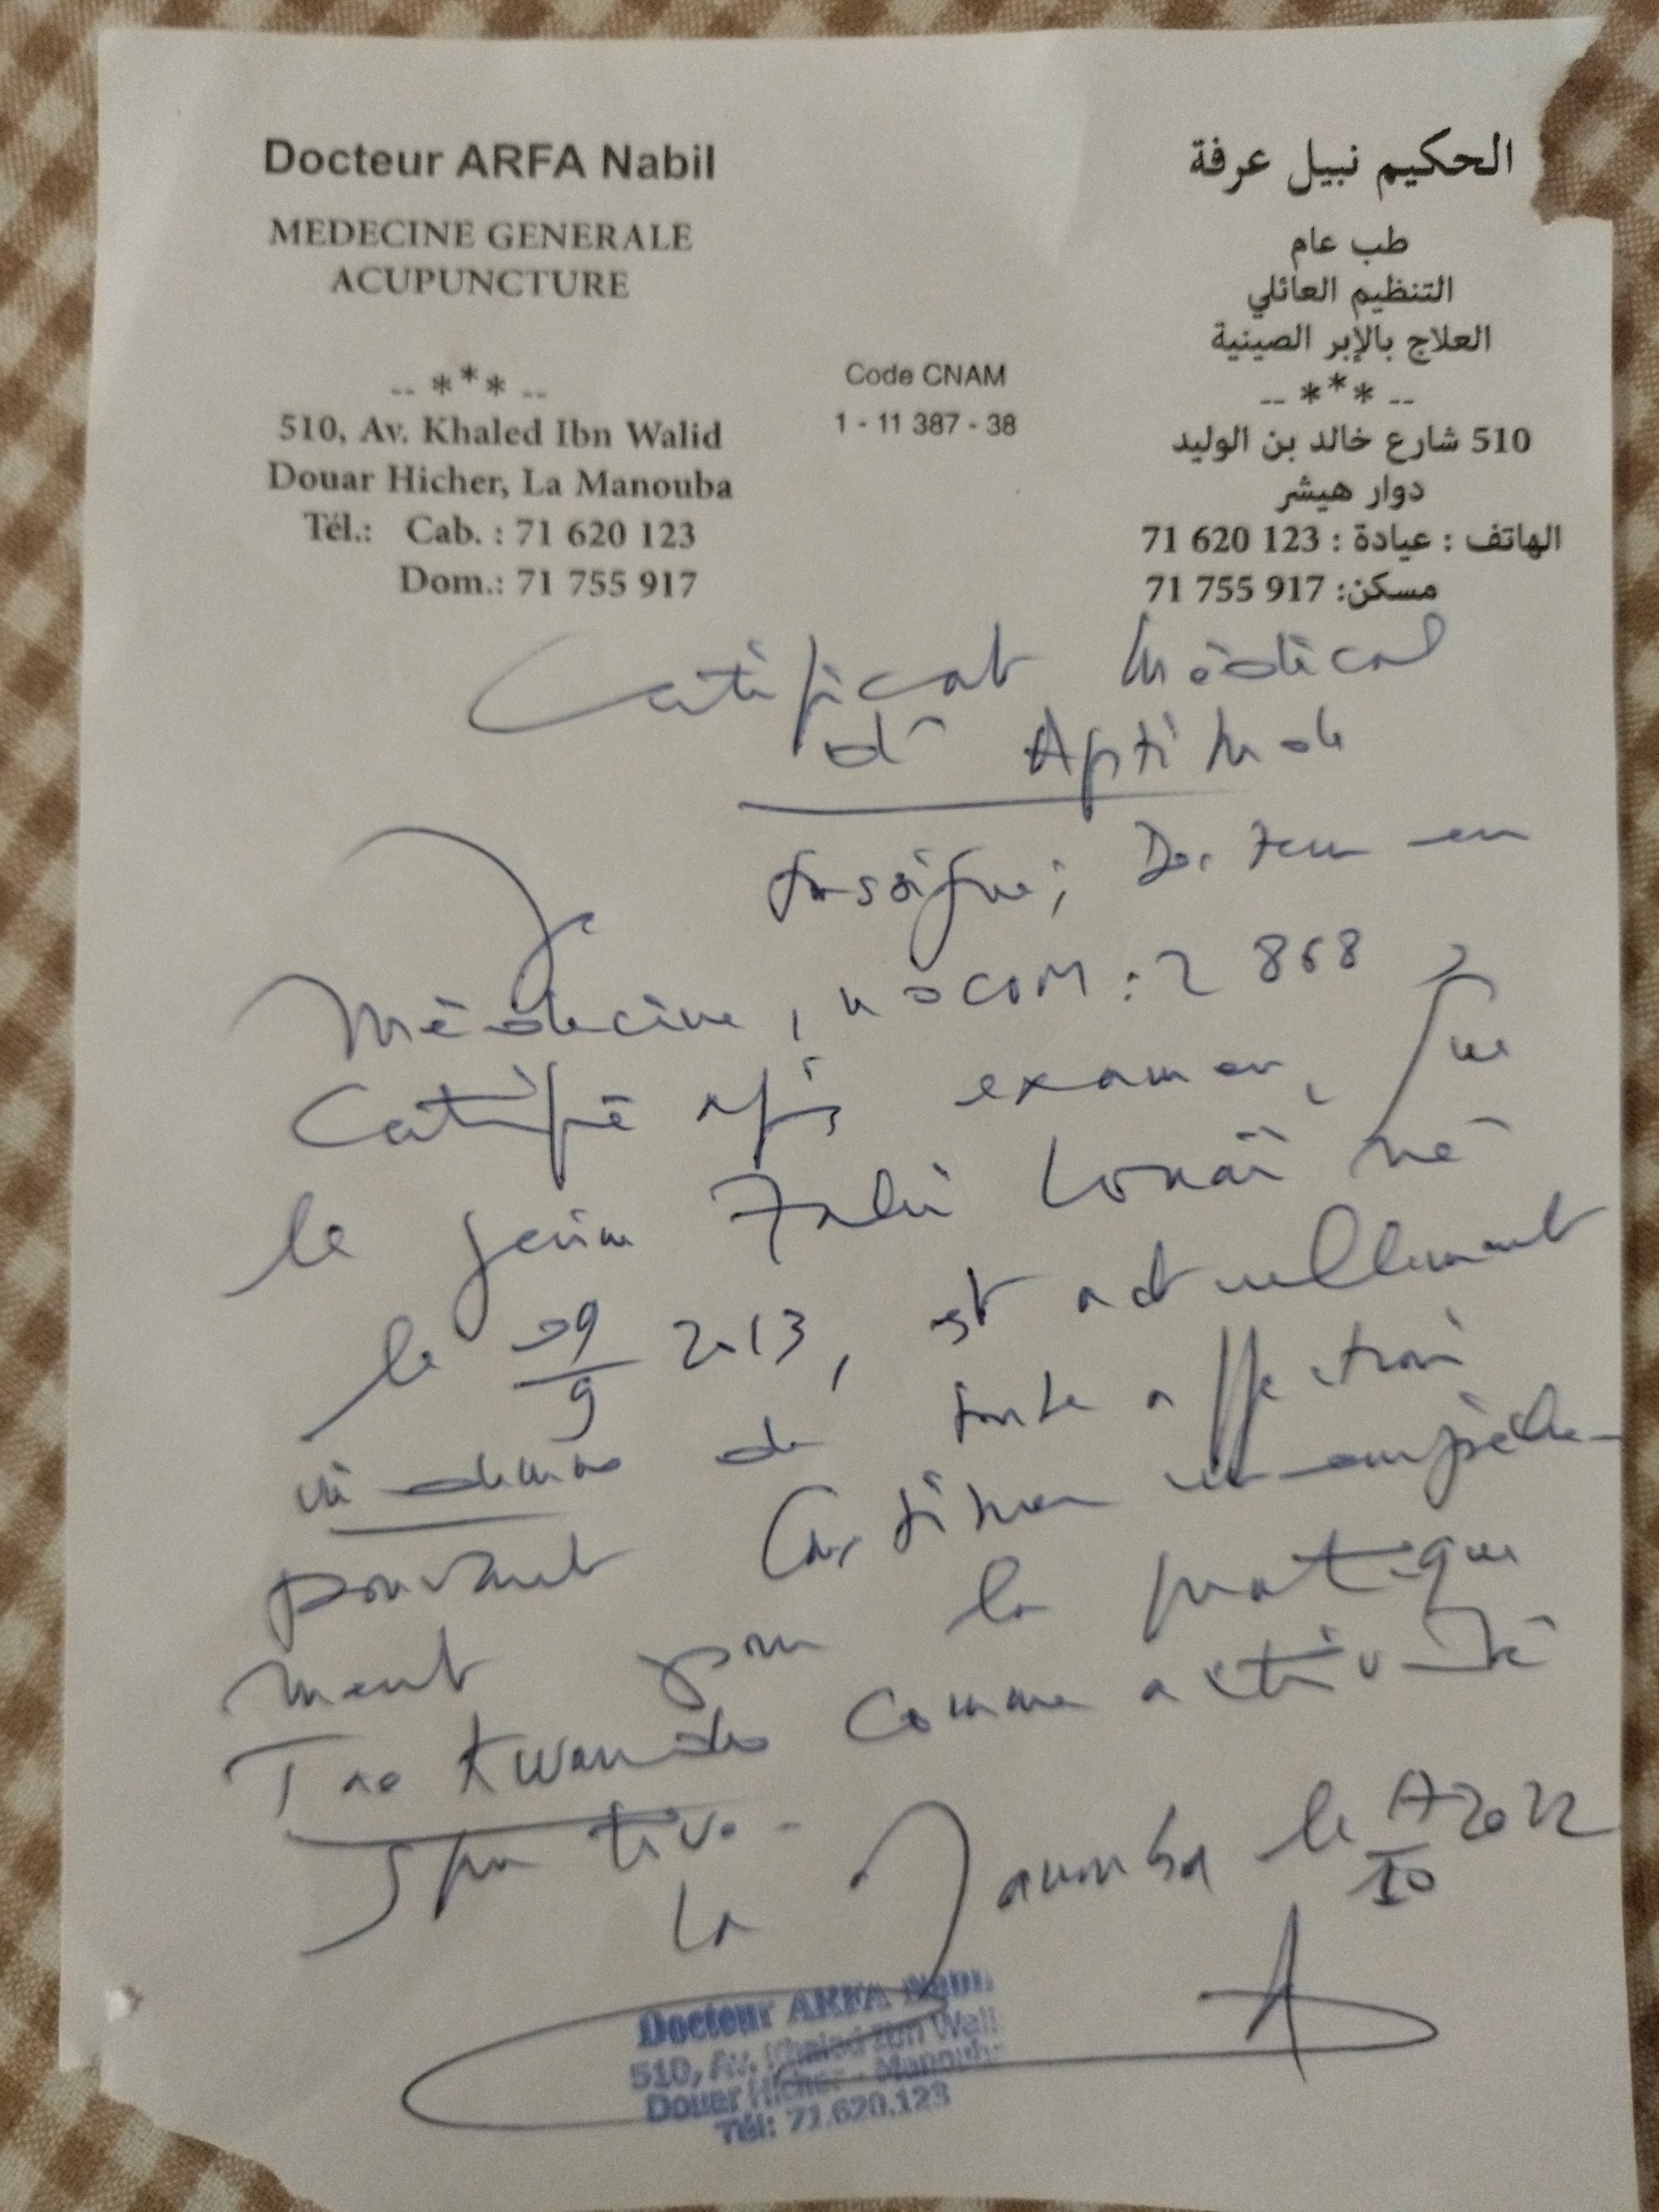 Docteur ARFA Nabil
MEDECINE GENERALE
ACUPUNCTURE
-- *** --
510, Av. Khaled Ibn Walid
Douar Hicher, La Manouba
Tél.: Cab. : 71 620 123
Dom.: 71 755 917
Code CNAM
1 - 11 387 - 38
الحكيم نبيل عرفة
طب عام
التنظيم العائلي
العلاج بالإبر الصينية
-- *** --
510 شارع خالد بن الوليد
دوار هيشر
الهاتف : عيادة : 123 620 71
مسكن: 917 755 71
Certificat Médical
d' Aptitude
Je soussigné; Docteur en
Médecine, n° COM : 2 868
Certifie après examen, que
le jeune Louaï né
le 09/9 2013, est actuellement
indemne de toute affection
pouvant constituer un empêche-
ment pour la pratique
Tae Kwondo comme activité
sportive.-
La Manouba le 17/10 2022
Docteur ARFA Nabil
510, Av. Khaled Ibn Wali
Douar Hicher - Manouba
Tél: 71.620.123